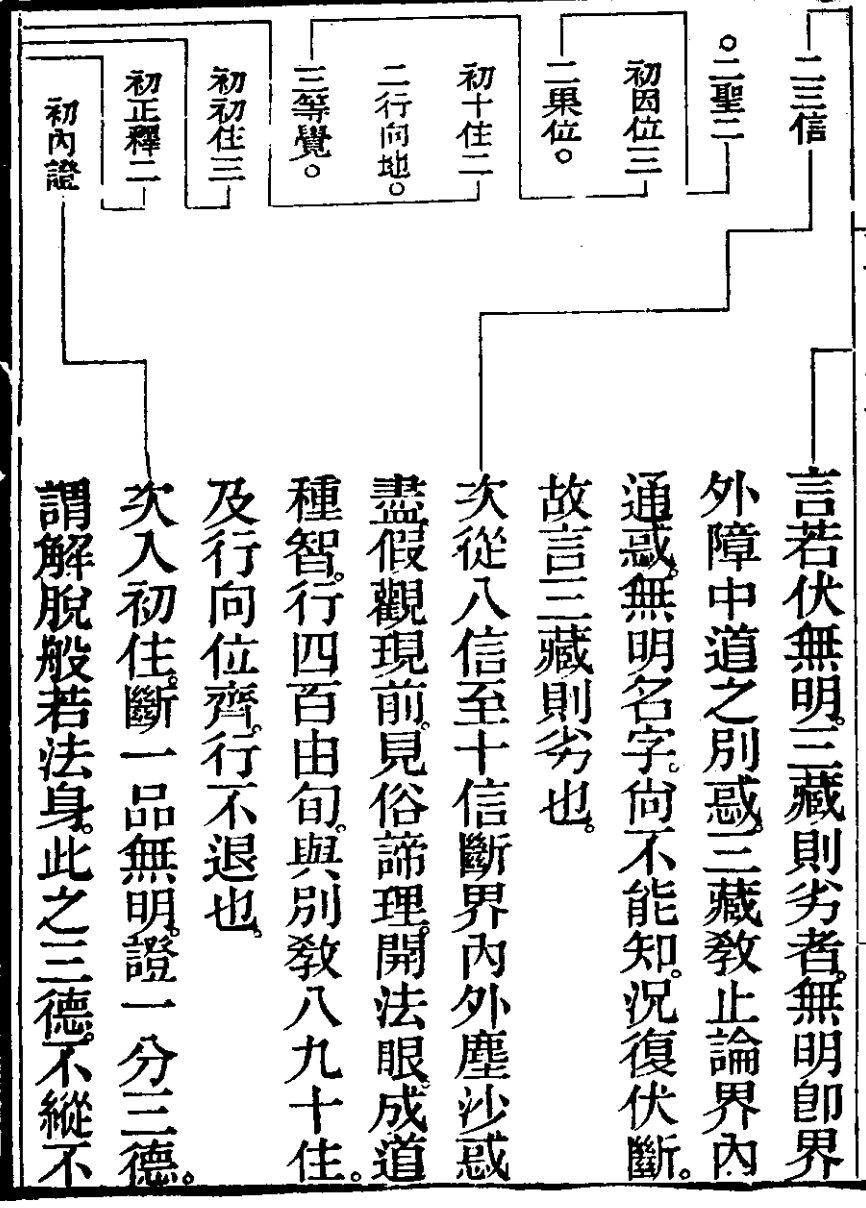 二三信
○二聖二
初因位三
二果位○
初十住二
二行向地○
三等覺○
初初住三
初正釋二
初內證
言若伏無明。三藏則劣者。無明卽界
外障中道之別惑。三藏敎止論界內
通惑。無明名字。尙不能知。況復伏斷。
故言三藏則劣也。
次從八信至十信斷界內外塵沙惑
盡假觀現前。見俗諦理。開法眼。成道
種智。行四百由旬。與別敎八九十住。
及行向位齊。行不退也。
次入初住。斷一品無明。證一分三德。
謂解脫般若法身。此之三德。不縱不